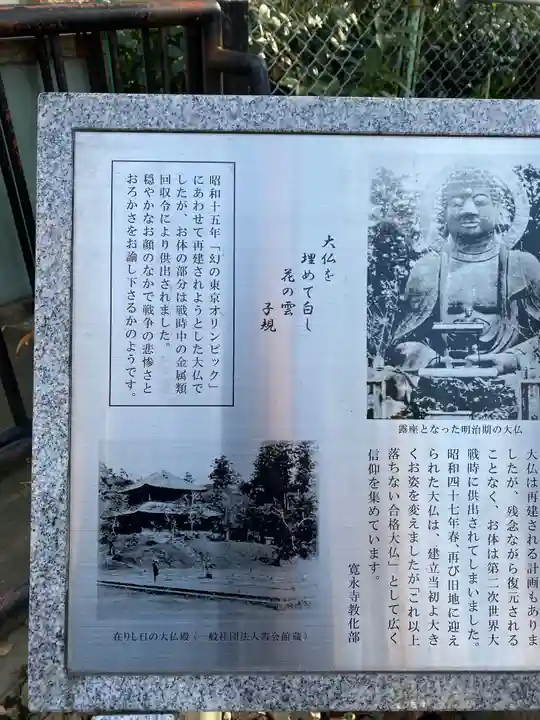 露座となった明治期の大仏
大仏は再建される計画もありま
したが、残念ながら復元される
ことなく、お体は第二次世界大
戦時に供出されてしまいました。
昭和四十七年春、再び旧地に迎え
られた大仏は、建立当初より大き
くお姿を変えましたが「これ以上
落ちない合格大仏」として広く
信仰を集めています。
寛永寺教化部
大仏を
埋めて白し
花の雲
子規
昭和十五年「幻の東京オリンピック」
にあわせて再建されようとした大仏で
したが、お体の部分は戦時中の金属類
回収令により供出されました。
穏やかなお顔のなかで戦争の悲惨さと
おろかさをお諭し下さるかのようです。
在りし日の大仏殿（一般社団法人霞会館蔵）